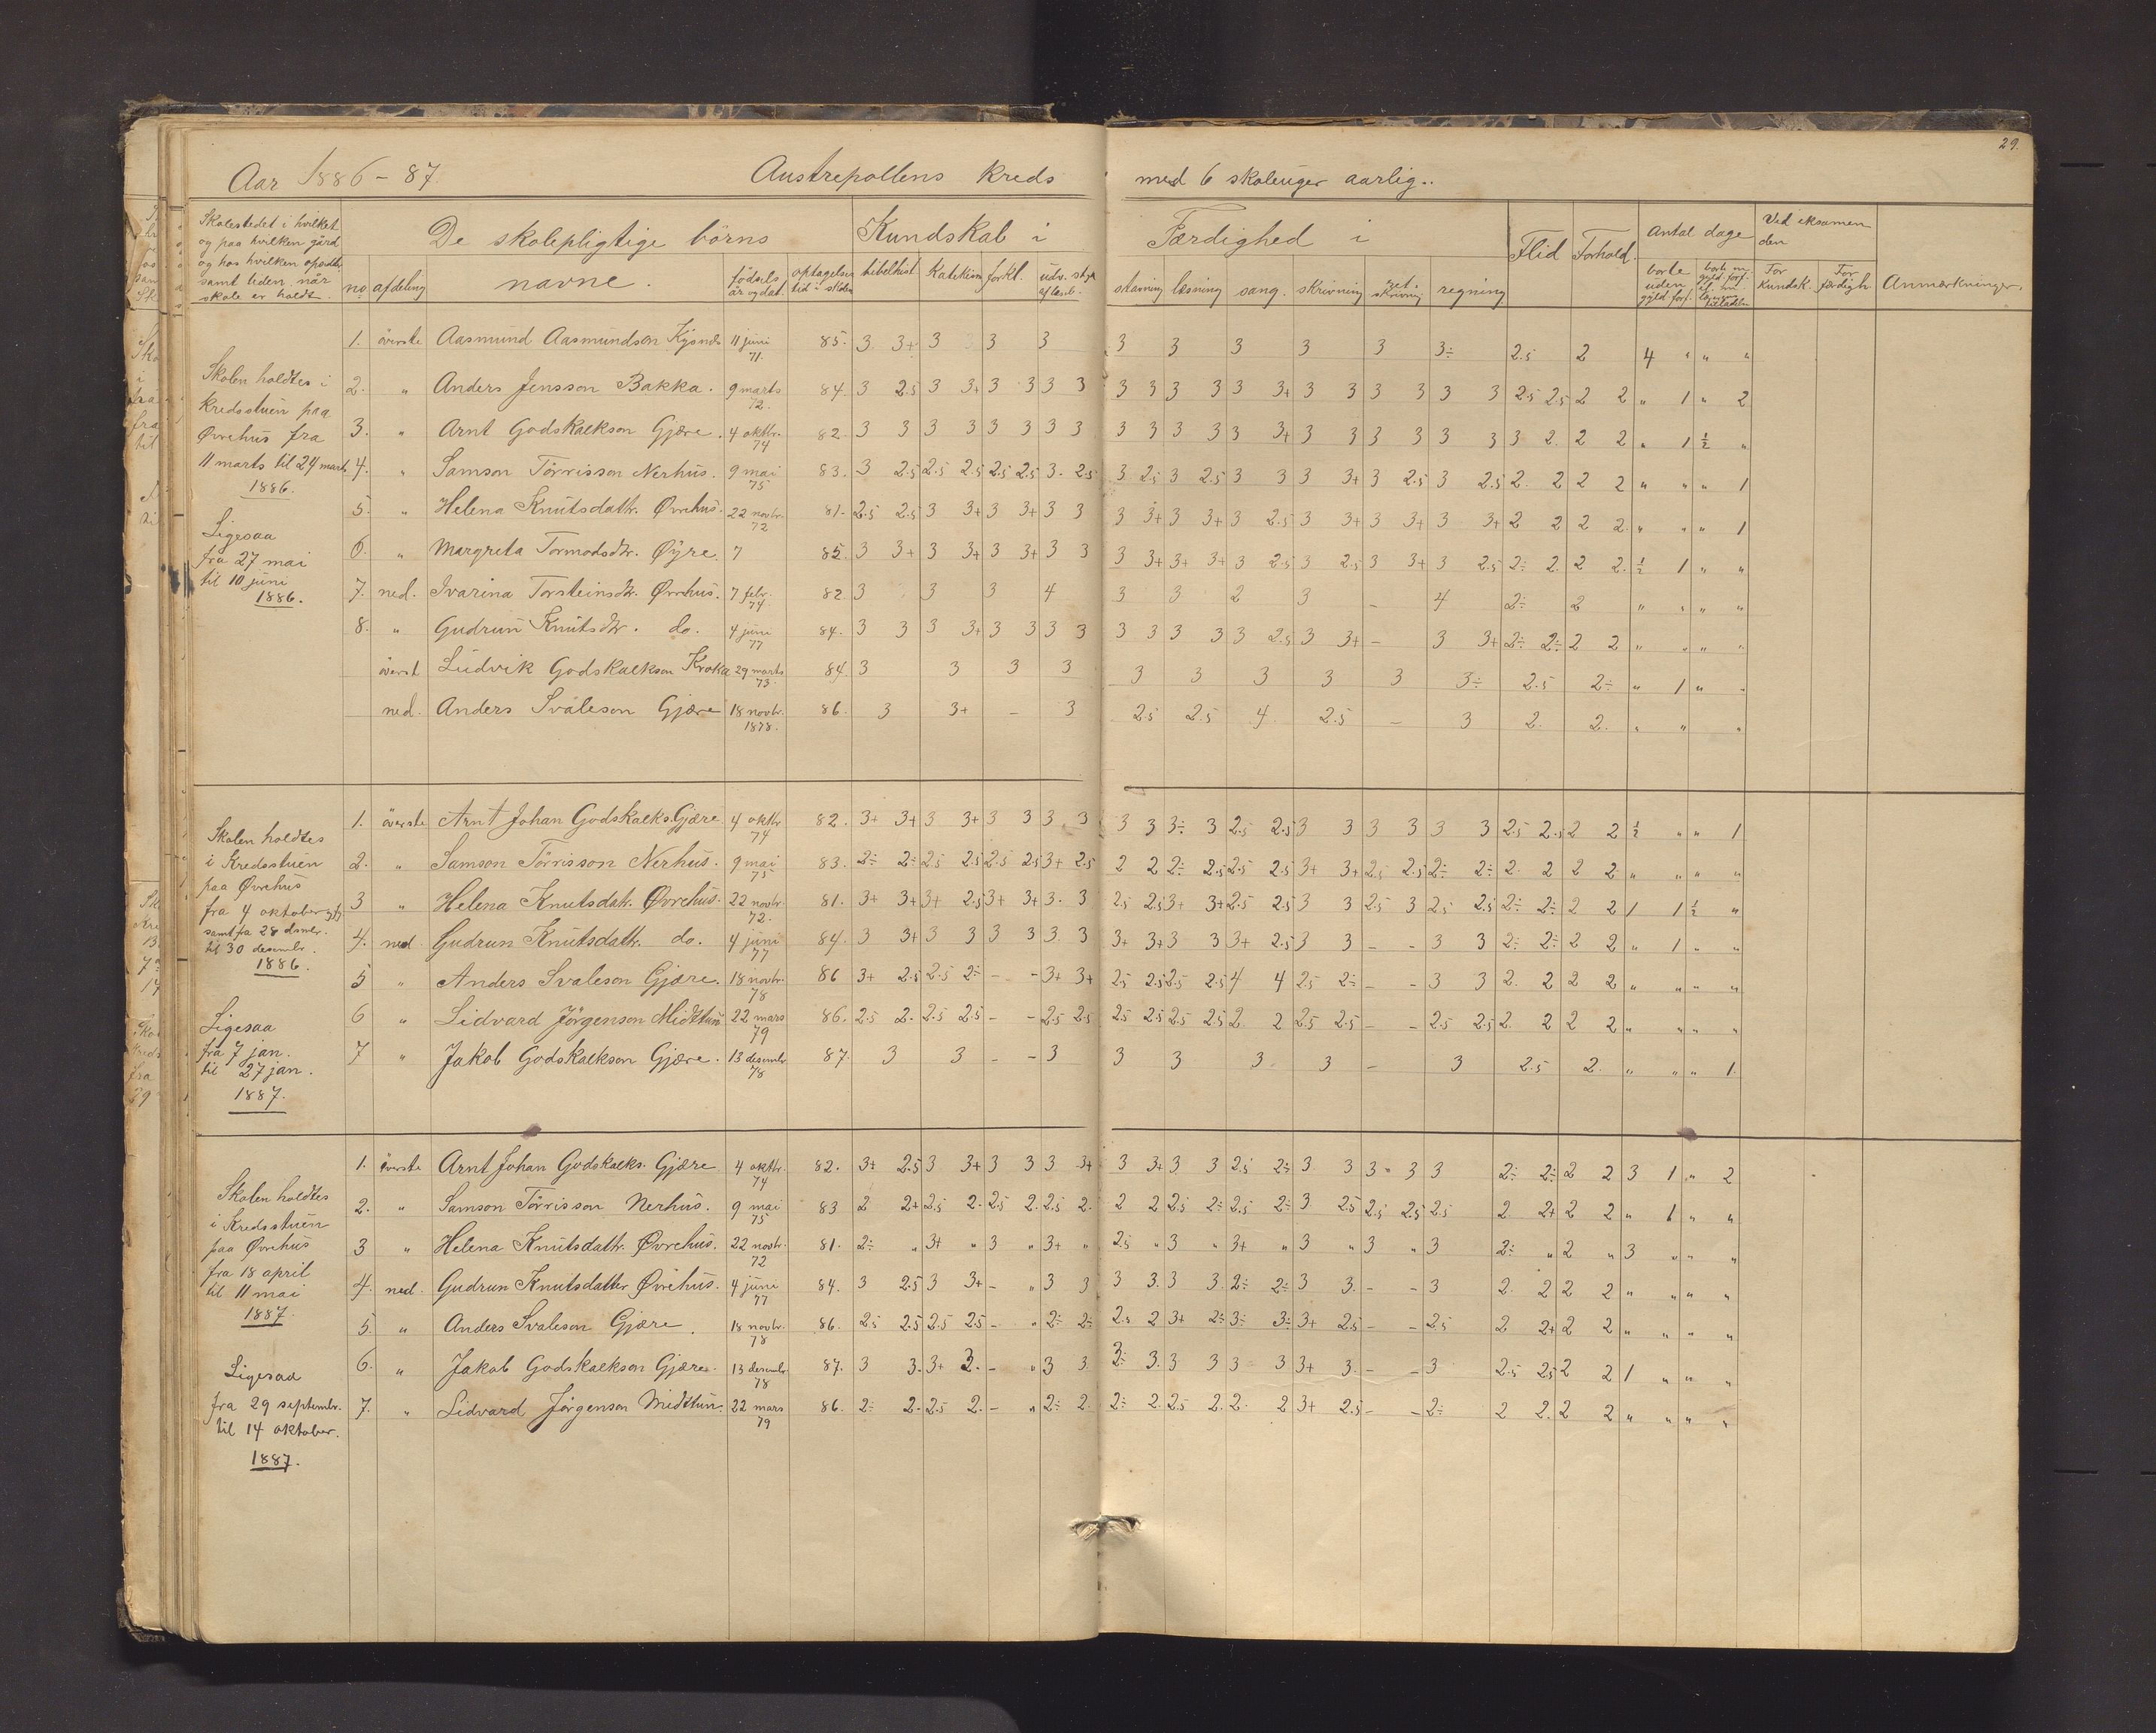 29.
Aar 1886-87. Austrepollens Kreds med 6 skoleuger aarlig..
Skolestedet i hvilket og paa hvilken gård og hos hvilken samt tiden når skole er holdt.
De skolepligtige börns
no. afdeling navne. fødsels år og dat. optagelses tid i skolen
Kundskab i
bibelhist. Katekism forkl. udv. styk. af læseb.
Færdighed i
stavning læsning sang. skrivning ret-skrivning regning
Flid Forhold.
Antal dage
borte uden gyld. forf.
Ved eksamen den
For Kundsk. For færdigh. Anmærkninger.
Skolen holdtes i
Kredsstuen paa
Øvrehus fra
11 marts til 24 marts
1886.
Ligesaa
fra 27 mai
til 10 juni
1886.
1. överste Aasmund Aasmundson 11 juni 71. 85. 3 3+ 3 3 3 3 3 3 3 3 3÷ 2.5 2 4 " " "
2. " Anders Jensson Bakka. 9 marts 72. 84. 3 2.5 3 3+ 3 3 3 3 3 3 3 3 3 3+ 3 3 3 3 3 3 2.5 2.5 2 2 " 1 " 2
3. " Arnt Godskalkson Gjære. 4 oktbr. 74 82. 3 3 3 3 3 3 3 3 3 3 3 3 3 3+ 3 3 3 3 3 3 3 2. 2 2 " 1 ½ "
4. " Samson Törrisson Nerhus. 9 mai 75 83. 3 2.5 2.5 2.5 2.5 2.5 3. 2.5 3 2.5 3 2.5 3 3 3 3+ 3 2.5 3 2.5 2. 2 2 2 " " " 1
5. " Helena Knutsdattr. Øvrehus. 22 novbr. 72 81. 2.5 2.5 3 3+ 3 3+ 3 3 3 3+ 3 3+ 3 2.5 3 3+ 3 3+ 3 3+ 2 2 2 2. " " " 1
6. " Margreta Tormodsdtr. Øyre. ? 85. 3 3+ 3 3+ 3 3+ 3 3 3 3+ 3+ 3+ 3 2.5 3 2.5 3 3+ 3 2.5 2÷ 2. 2 2. ½ 1 " "
7. ned. Ivarina Torsteinsdtr. Øvrehus. 7 febr. 74 82 3 3 3 4 3 3 2 3 – 4 2÷ 2 " " " "
8. " Gudrun Knutsdtr. do. 4 juni 77 84. 3 3 3 3+ 3 3 3 3 3 3 3 3 3 2.5 3 3+ – 3 3+ 2÷ 2÷ 2 2 " " " "
överst Ludvik Godskalkson Kroka 29 marts 73. 84. 3 3 3 3 3 3 3 3 3 3÷ 2.5 2÷ " 1 " "
ned. Anders Svaleson Gjære 18 novbr. 1878. 86. 3 3+ – 3 2.5 2.5 4. 2.5 – 3 2. 2. " " "
Skolen holdtes
i Kredsstuen
paa Øvrehus
fra 4 oktober
samt fra 28 dsmbr.
til 30 desembr.
1886.
Ligesaa
fra 7 jan.
til 27 jan.
1887.
1. överste Arnt Johan Godskalks. Gjære 4 oktbr 74 82. 3+ 3+ 3 3+ 3 3 3 3 3 3 3÷ 3 2.5 2.5 3 3 3 3 3 3 2.5 2.5 2 2 ½ " " 1
2. " Samson Törrisson Nerhus. 9 mai 75 83. 2÷ 2÷ 2.5 2.5 2.5 2.5 3+ 2.5 2 2 2÷ 2.5 2.5 2.5 3+ 3+ 2.5 2.5 2÷ 2÷ 2. 2 2 2 " " " "
3 " Helena Knutsdatr. Øvrehus. 22 novbr. 72. 81. 3+ 3+ 3+ 2.5 3+ 3+ 3. 3 2.5 2.5 3+ 3+ 2.5 2.5 3 3 2.5 3 2.5 2.5 2÷ 2÷ 2 2 1 1 ½ "
4. ned Gudrun Knutsdattr. do. 4 juni 77 84. 3 3+ 3 3 3 3 3 3 3+ 3+ 3 3 3+ 2.5 3 3 – – 3 3 2÷ 2÷ 2 2 " 1 " "
5 " Anders Svaleson Gjære. 18 novbr. 78 86 3+ 2.5 2.5 2÷ – – 3+ 3+ 2.5 2.5 2.5 2.5 4 4 2.5 2÷ – – 3 3 2. 2 2 2 " " " "
6 " Lidvard Jörgenson Midttun 22 mars 79 86. 2.5 2. 2.5 2.5 – – 2.5 2.5 2.5 2.5 2.5 2.5 2. 2 2.5 2.5 – – 2.5 2.5 2. 2 2 2 " " " "
7 " Jakob Godskalkson Gjære. 13 desembr 78 87. 3 3 – – 3 3 3 3 3 – 3 2.5 2. " " " 1.
Skolen holdtes
i Kredsstuen
paa Øvrehus
fra 18 april
til 11 mai
1887.
Ligesaa
fra 29 septembr.
til 14 oktober.
1887.
1. överste Arnt Johan Godskalks. Gjære 4 oktbr. 74 82. 3+ 2.5 3 3+ 3 3 3 3+ 3 3+ 3 3 2.5 2÷ 3 3 3 " 3 3 2÷ 2÷ 2 2 3 1 " 2
2. " Samson Törrisson Nerhus. 9 mai 75 83 2 2+ 2.5 2. 2.5 2. 2.5 2. 2 2 2.5 2÷ 2.5 2÷ 3 2.5 2.5 2.5 2.5 2 2+ 2 2 " 6 " "
3 " Helena Knutsdattr. Øvrehus. 22 novbr. 72 81. 2÷ " 3+ " 3 " 3+ " 2.5 " 3 " 3+ " 3 " 3 " 3 2÷ " 2 " 3 " " "
4. ned. Gudrun Knutsdatter Øvrehus. 4 juni 77 84. 3 2.5 3 3+ – " 3 3 3 3. 3 3. 2÷ 2÷ 3 3. – – 3 2. 2 2 2 " " " "
5. " Anders Svaleson Gjære. 18 novbr. 78 86. 2.5 2.5 2.5 2.5 – " 2÷ 2÷ 2.5 2 3+ 2÷ 3÷ 3÷ 3+ 2.5 – – 2.5 2 2+ 2 2 " " " "
6. " Jakob Godskalkson Gjære. 13 desembr 78 87. 3 3. 3+ 3. – " 3 3. 3÷ 3. 3 3 3 3 3+ 3. – – 3 2.5 2.5 2 2 1 " " "
7. " Lidvard Jörgenson Midttun. 22 mars 79 86. 2÷ 2. 2.5 2. – " 2÷ 2. 2÷ 2. 2.5 2. 2. 2 3+ 2.5 – – 2÷ 2 2. 2 2 " " " "